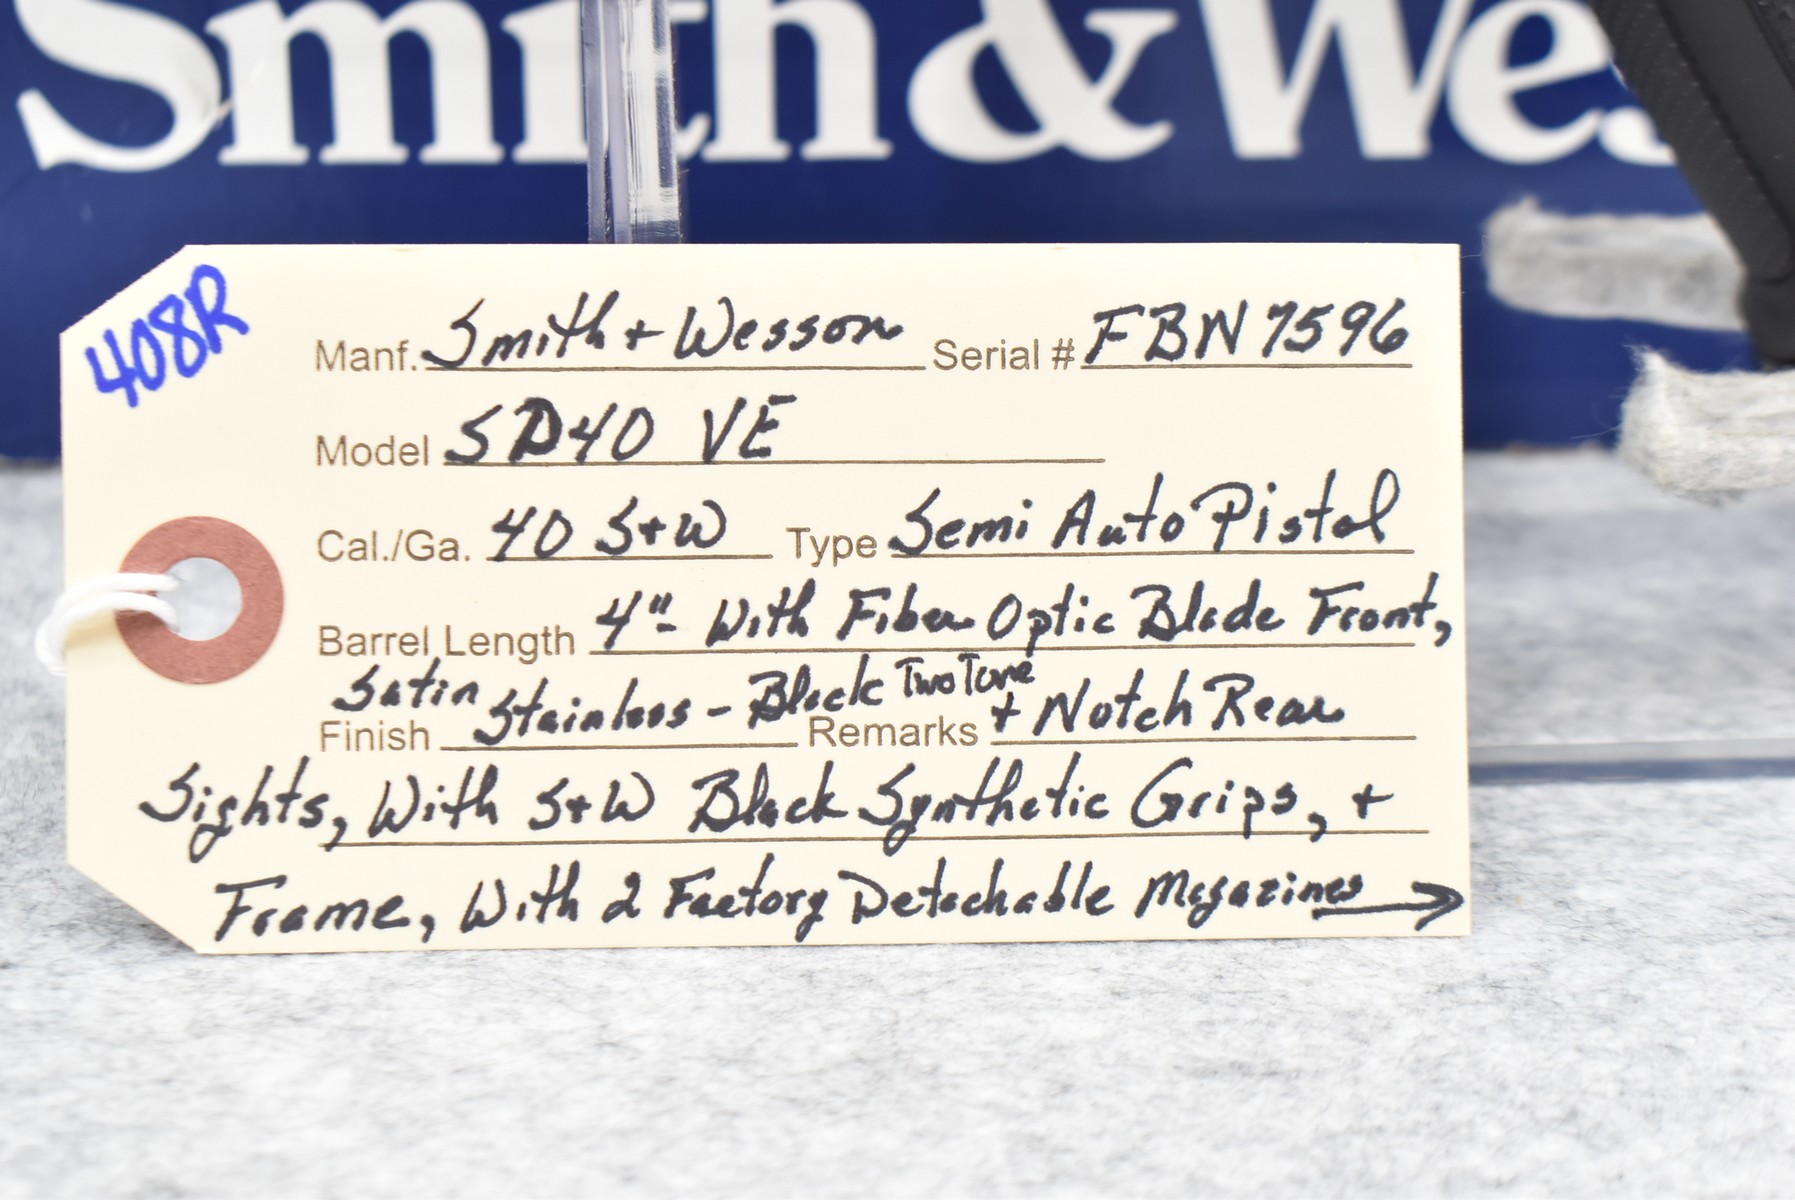 Smith & Wes
408R
Manf. Smith + Wesson Serial # FBN7596
Model SD40 VE
Cal./Ga. 40 S+W Type Semi Auto Pistol
Barrel Length 4"- With Fiber Optic Blade Front,
Finish Satin Stainless - Black Two Tone Remarks + Notch Rear
Sights, With S+W Black Synthetic Grips, +
Frame, With 2 Factory Detachable Magazines →